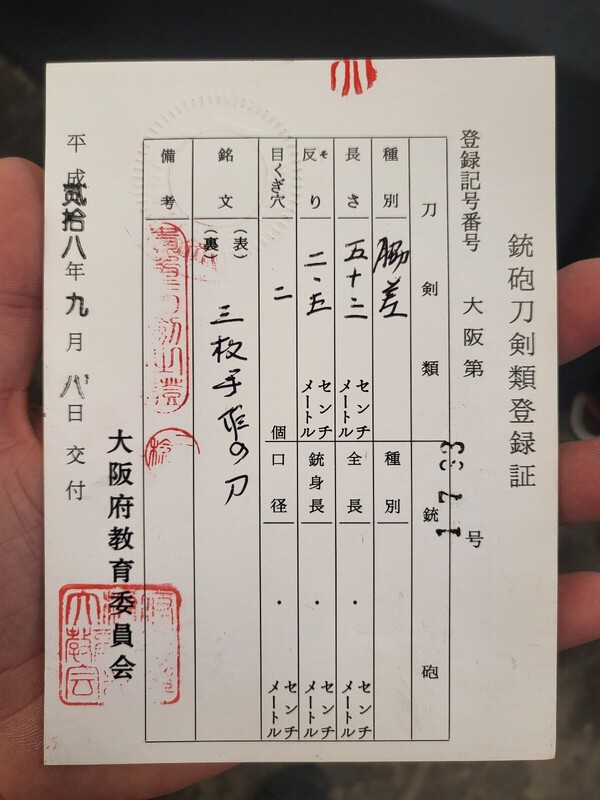 銃砲刀剣類登録証
登録記号番号 大阪第 1733 号
刀剣類
種別 脇差
長さ 五十二 センチメートル
反り ソリ 二、五 センチメートル
目くぎ穴 二 個
銃砲
種別
全長 ・ センチメートル
銃身長 ・ センチメートル
口径 ・ センチメートル
銘文 (表)
(裏) 三枚手作の刀
備考
大阪府教育委員会
平成貳拾八年九月八日交付